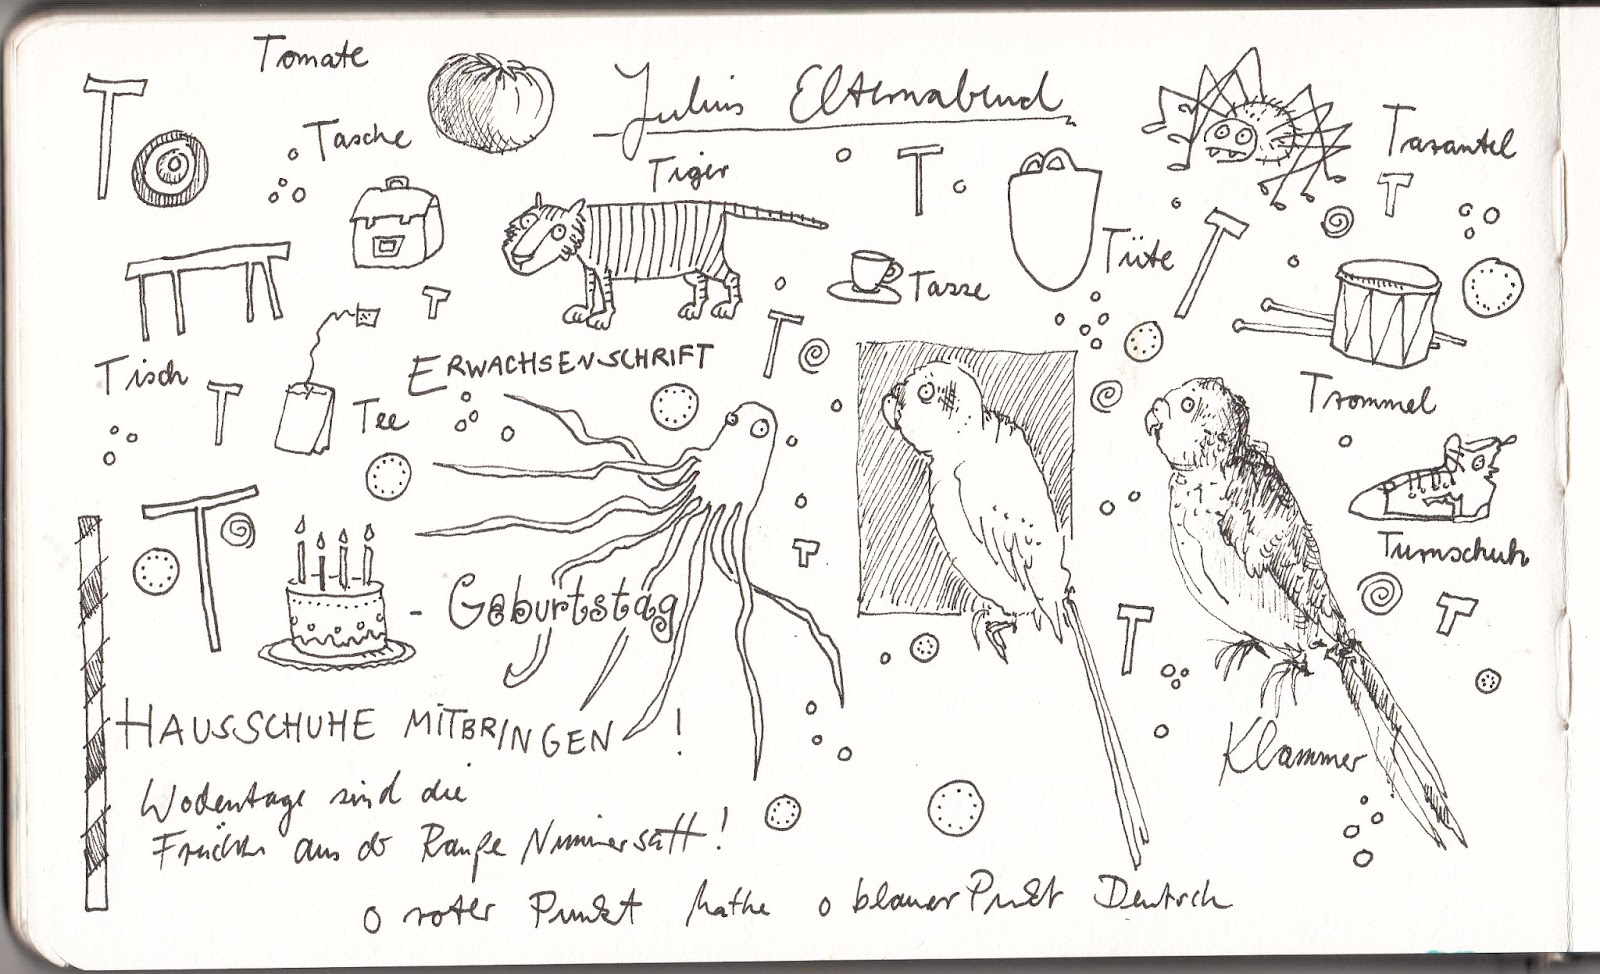 Tomate
Julius Elternabend
T
Tasche
Tiger
T
Tarantel
T
T
Tüte
Tasse
T
Tisch
T
Tee
ERWACHSENSCHRIFT
T
Trommel
T
T
Turnschuh
- Geburtstag
T
T
HAUSSCHUHE MITBRINGEN !
Klammer
Wochentage sind die
Früchte aus d Raupe Nimmersatt!
o roter Punkt Mathe o blauer Punkt Deutsch